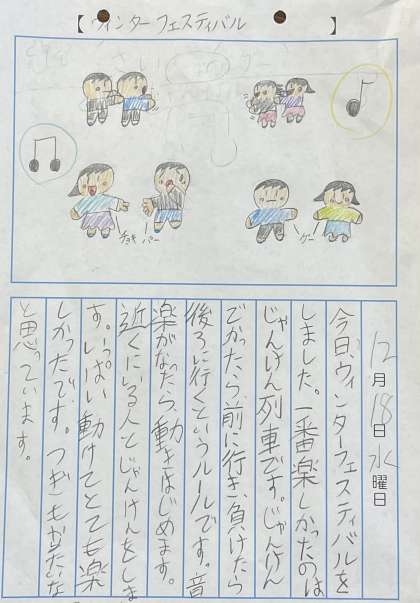 【ウィンターフェスティバル】
チョキ
パー
グー
12月18日水曜日
今日、ウィンターフェスティバルを
しました。一番楽しかったのは
じゃんけん列車です。じゃんけん
でかったら、前に行き、負けたら
後ろに行くというルールです。音
楽がなったら、動きはじめます。
近くにいる人とじゃんけんをしま
す。いっぱい動けてとても楽
しかったです。つぎもやりたいな
と思っています。